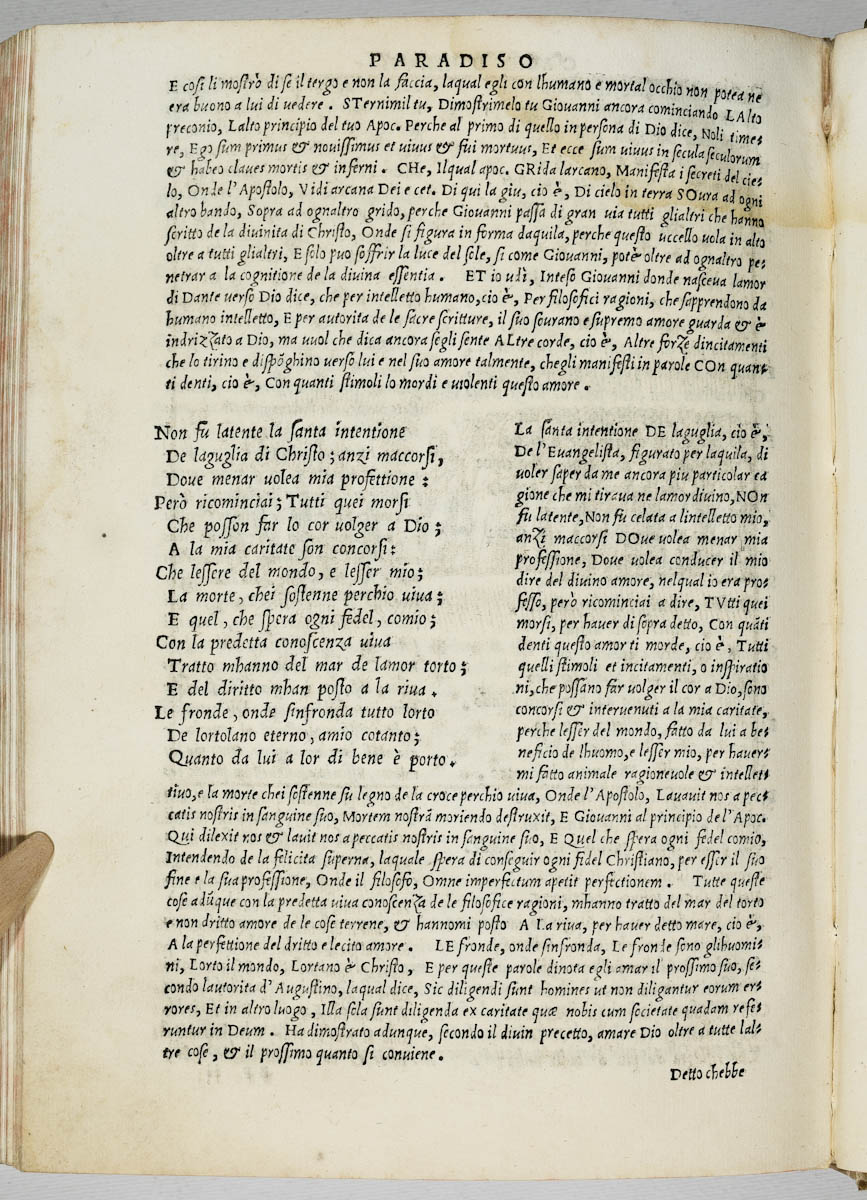 PARADISO
E cosi li mostrò di se il tergo e non la faccia, laqual egli con lhumano e mortal occhio non potea ne
era buono a lui di vedere. STernimil tu, Dimostrimelo tu Giovanni ancora cominciando LAlto
preconio, Lalto principio del tuo Apoc. Perche al primo di quello in persona di Dio dice, Noli time-
re, Ego sum primus & novissimus et vivus & fui mortuus, Et ecce sum vivus in secula seculorum
& habeo claves mortis & inferni. CHe, Ilqual apoc. GRida larcano, Manifesta i secreti del cie-
lo, Onde l'Apostolo, Vidi arcana Dei e cet. Di qui la giu, cio è, Di cielo in terra SOura ad ogni
altro bando, Sopra ad ognaltro grido, perche Giovanni passa di gran via tutti glialtri che hanno
scritto de la divinita di Christo, Onde si figura in forma daquila, perche questo uccello vola in alto
oltre a tutti glialtri, E solo puo soffrir la luce del sole, si come Giovanni, potè oltre ad ognaltro pe-
netrar a la cognitione de la divina essentia. ET io udì, Inteso Giovanni donde nasceva lamor
di Dante verso Dio dice, che per intelletto humano, cio è, Per filosofici ragioni, che sapprendono da
humano intelletto, E per autorita de le sacre scritture, il suo sourano e supremo amore guarda & è
indrizzato a Dio, ma vuol che dica ancora segli sente ALtre corde, cio è, Altre forze dincitamenti
che lo tirino e dispõghino verso lui e nel suo amore talmente, chegli manifesti in parole COn quan-
ti denti, cio è, Con quanti stimoli lo mordi e violenti questo amore.
Non fu latente la santa intentione
De laguglia di Christo; anzi maccorsi,
Dove menar volea mia profettione:
Però ricominciai; Tutti quei morsi
Che posson far lo cor volger a Dio;
A la mia caritate son concorsi:
Che lessere del mondo, e lesser mio;
La morte, chei sostenne perchio viva;
E quel, che spera ogni fedel, comio;
Con la predetta conoscenza viva
Tratto mhanno del mar de lamor torto;
E del diritto mhan posto a la riva.
Le fronde, onde sinfronda tutto lorto
De lortolano eterno, amio cotanto;
Quanto da lui a lor di bene è porto.
La santa intentione DE laguglia, cio è,
De l'Evangelista, figurato per laquila, di
voler saper da me ancora piu particolar ca
gione che mi tirava ne lamor divino, NOn
fu latente, Non fu celata a lintelletto mio,
anzi maccorsi DOve volea menar mia
professione, Dove volea conducer il mio
dire del divino amore, nelqual io era pro-
fesso, però ricominciai a dire, TVtti quei
morsi, per haver di sopra detto, Con quãti
denti questo amor ti morde, cio è, Tutti
quelli stimoli et incitamenti, o inspiratio
ni, che possano far volger il cor a Dio, sono
concorsi & intervenuti a la mia caritate,
perche lesser del mondo, fatto da lui a be-
neficio de lhuomo, e lesser mio, per haver-
mi fatto animale ragionevole & intellet-
tivo, e la morte chei sostenne su legno de la croce perchio viva, Onde l'Apostolo, Lavavit nos a pec-
catis nostris in sanguine suo, Mortem nostrã moriendo destruxit, E Giovanni al principio de l'Apoc.
Qui dilexit nos & lavit nos a peccatis nostris in sanguine suo, E Quel che spera ogni fedel comio,
Intendendo de la felicita superna, laquale spera di conseguir ogni fidel Christiano, per esser il suo
fine e la sua professione, Onde il filosofo, Omne imperfectum apetit perfectionem. Tutte queste
cose adũque con la predetta viva conoscenza de le filosofice ragioni, mhanno tratto del mar del torto
e non dritto amore de le cose terrene, & hannomi posto A La riva, per haver detto mare, cio è,
A la perfettione del dritto e lecito amore. LE fronde, onde sinfronda, Le fronde sono glihuomi-
ni, Lorto il mondo, Lortano è Christo, E per queste parole dinota egli amar il prossimo suo, se-
condo lautorita d'Augustino, laqual dice, Sic diligendi sunt homines ut non diligantur eorum er-
rores, Et in altro luogo, Illa sola sunt diligenda ex caritate quæ nobis cum societate quadam refe-
runtur in Deum. Ha dimostrato adunque, secondo il divin precetto, amare Dio oltre a tutte lal-
tre cose, & il prossimo quanto si conviene.
Detto chebbe